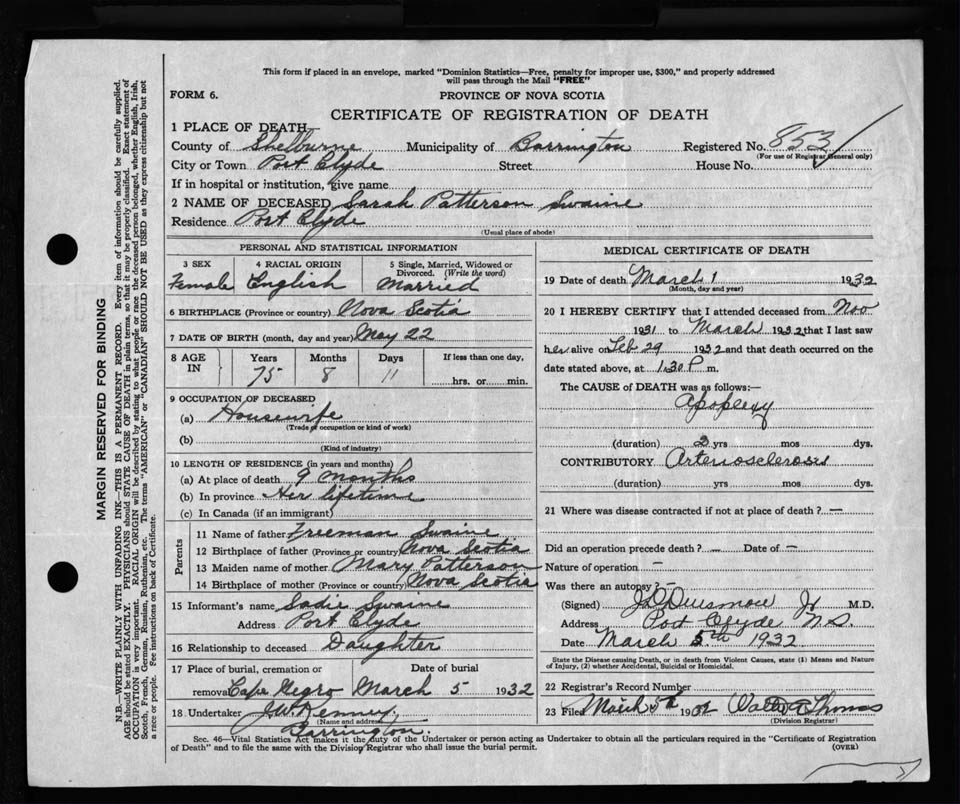 This form if placed in an envelope, marked "Dominion Statistics—Free, penalty for improper use, $300," and properly addressed
will pass through the Mail "FREE"
FORM 6. PROVINCE OF NOVA SCOTIA
CERTIFICATE OF REGISTRATION OF DEATH
1 PLACE OF DEATH
County of Shelburne Municipality of Barrington Registered No. 853
(For use of Registrar General only)
City or Town Port Clyde Street House No.
If in hospital or institution, give name
2 NAME OF DECEASED Sarah Patterson Swaine
Residence Port Clyde
(Usual place of abode)
PERSONAL AND STATISTICAL INFORMATION
3 SEX 4 RACIAL ORIGIN 5 Single, Married, Widowed or
Divorced. (Write the word)
Female English Married
6 BIRTHPLACE (Province or country) Nova Scotia
7 DATE OF BIRTH (month, day and year) May 22
8 AGE IN Years Months Days If less than one day,
75 8 11 hrs. or min.
9 OCCUPATION OF DECEASED
(a) Housewife
(Trade or occupation or kind of work)
(b)
(Kind of industry)
10 LENGTH OF RESIDENCE (in years and months)
(a) At place of death 9 months
(b) In province Her lifetime
(c) In Canada (if an immigrant)
Parents
11 Name of father Freeman Swaine
12 Birthplace of father (Province or country) Nova Scotia
13 Maiden name of mother Mary Patterson
14 Birthplace of mother (Province or country) Nova Scotia
15 Informant's name Sadie Swaine
Address Port Clyde
16 Relationship to deceased Daughter
17 Place of burial, cremation or Date of burial
removal Cape Negro March 5 1932
18 Undertaker J.W. Kenney
(Name and address)
Barrington
MEDICAL CERTIFICATE OF DEATH
19 Date of death March 1 1932
(Month, day and year)
20 I HEREBY CERTIFY that I attended deceased from Nov
1931 to March 1932, that I last saw
her alive on Feb 29 1932 and that death occurred on the
date stated above, at 1.30 P m.
The CAUSE OF DEATH was as follows:—
Apoplexy
(duration) 2 yrs mos dys.
CONTRIBUTORY Arteriosclerosis
(duration) yrs mos dys.
21 Where was disease contracted if not at place of death? —
Did an operation precede death? – Date of –
Nature of operation –
Was there an autopsy? –
(Signed) Jr M.D.
Address Port Clyde N.S.
Date March 5th 1932
State the Disease causing Death, or in death from Violent Causes, state (1) Means and Nature
of Injury, (2) whether Accidental, Suicidal or Homicidal.
22 Registrar's Record Number
23 Filed March 5th 1932 Thomas
(Division Registrar)
Sec. 46—Vital Statistics Act makes it the duty of the Undertaker or person acting as Undertaker to obtain all the particulars required in the "Certificate of Registration
of Death" and to file the same with the Division Registrar who shall issue the burial permit. (OVER)
MARGIN RESERVED FOR BINDING
N.B.—WRITE PLAINLY WITH UNFADING INK—THIS IS A PERMANENT RECORD. Every item of information should be carefully supplied.
AGE should be stated EXACTLY. PHYSICIANS should STATE CAUSE OF DEATH in plain terms, so that it may be properly classified. Exact statement of
OCCUPATION is very important. RACIAL ORIGIN will be described by stating to what people or race the deceased person belonged, whether English, Irish,
Scotch, French, German, Russian, Ruthenian, etc. The terms "AMERICAN" or "CANADIAN" SHOULD NOT BE USED as they express citizenship but not
a race or people. See instructions on back of Certificate.